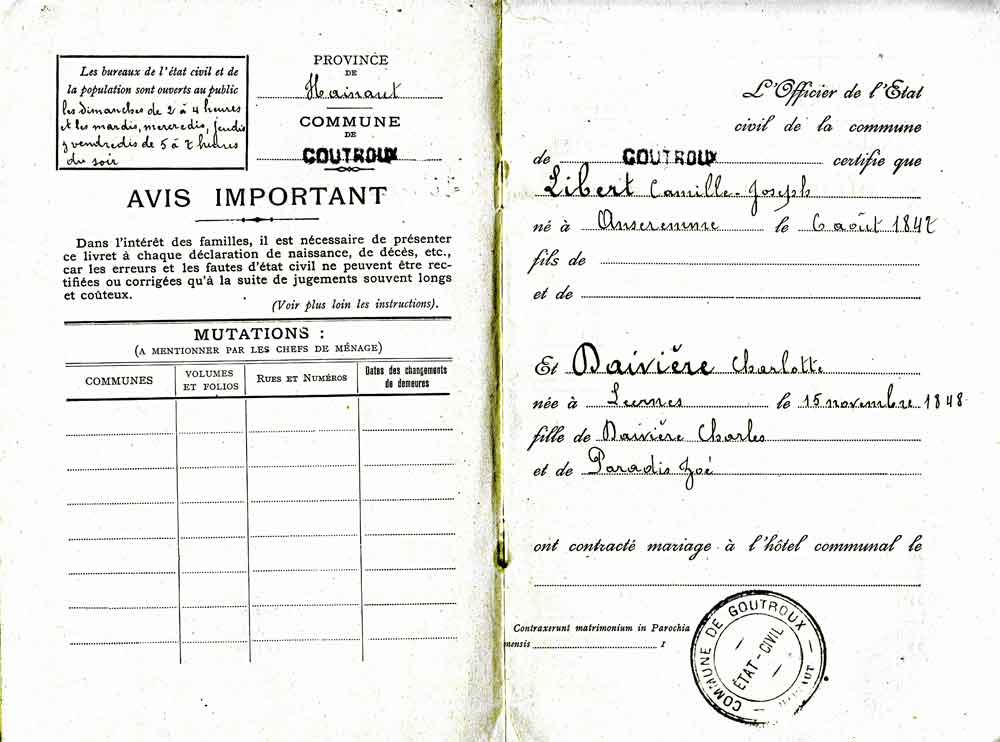 Les bureaux de l'état civil et de
la population sont ouverts au public
les dimanches de 2 à 4 heures
et les mardis, mercredis, jeudis
& vendredis de 5 à 7 heures
du soir
PROVINCE
DE
Hainaut
COMMUNE
DE
GOUTROUX
AVIS IMPORTANT
Dans l'intérêt des familles, il est nécessaire de présenter
ce livret à chaque déclaration de naissance, de décès, etc.,
car les erreurs et les fautes d'état civil ne peuvent être rec-
tifiées ou corrigées qu'à la suite de jugements souvent longs
et coûteux.
(Voir plus loin les instructions).
MUTATIONS :
(A MENTIONNER PAR LES CHEFS DE MÉNAGE)
COMMUNES
VOLUMES
ET FOLIOS
RUES ET NUMÉROS
Dates des changements
de demeures
L'Officier de l'État
civil de la commune
de GOUTROUX certifie que
Libert Camille-Joseph
né à Anseremme le 6 août 1847
fils de
et de
Et Daivière Charlotte
née à Lernes le 15 novembre 1848
fille de Daivière Charles
et de Paradis Zoé
ont contracté mariage à l'hôtel communal le
Contraxerunt matrimonium in Parochia
mensis 1
COMMUNE DE GOUTROUX
ÉTAT-CIVIL
HAINAUT